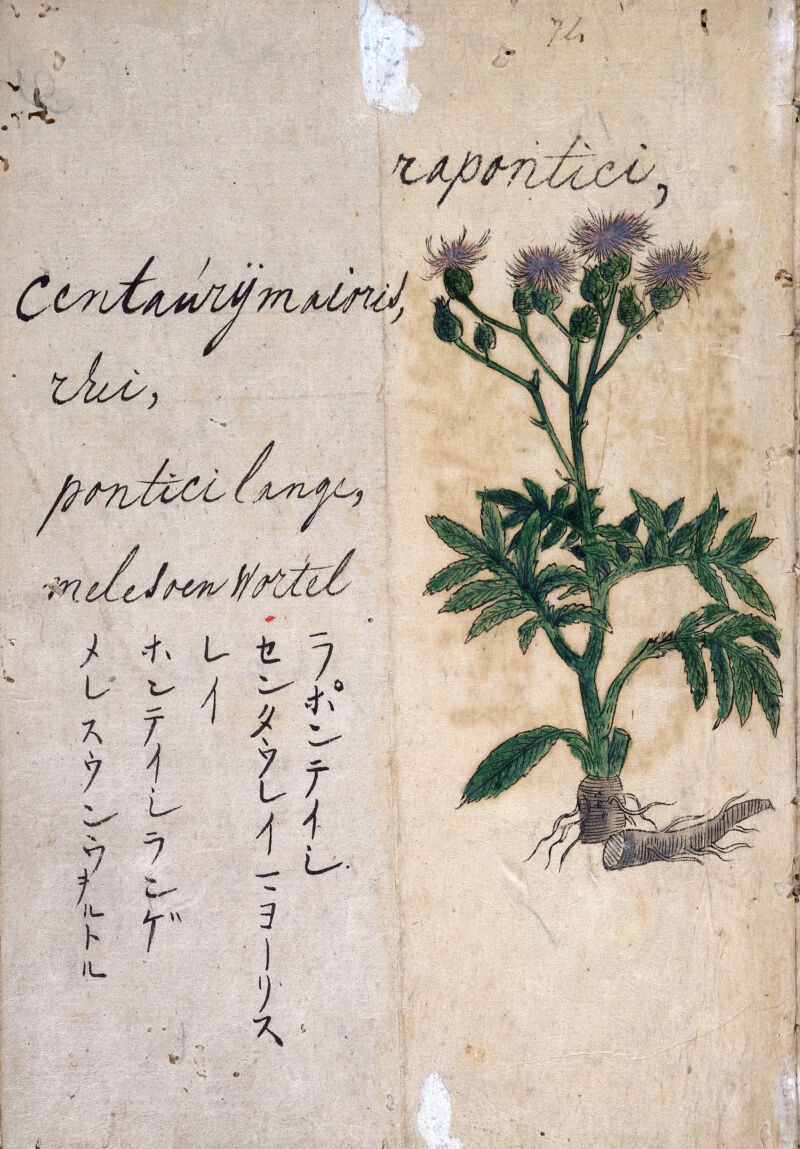 74
rapontici,
Centaúrÿmaioris,
rhei,
pontici lange,
melesoen Wortel
ラポンテイシ
センタウレイニヨーリス
レイ
ホンテイシランゲ
メレスウンウヲルトル